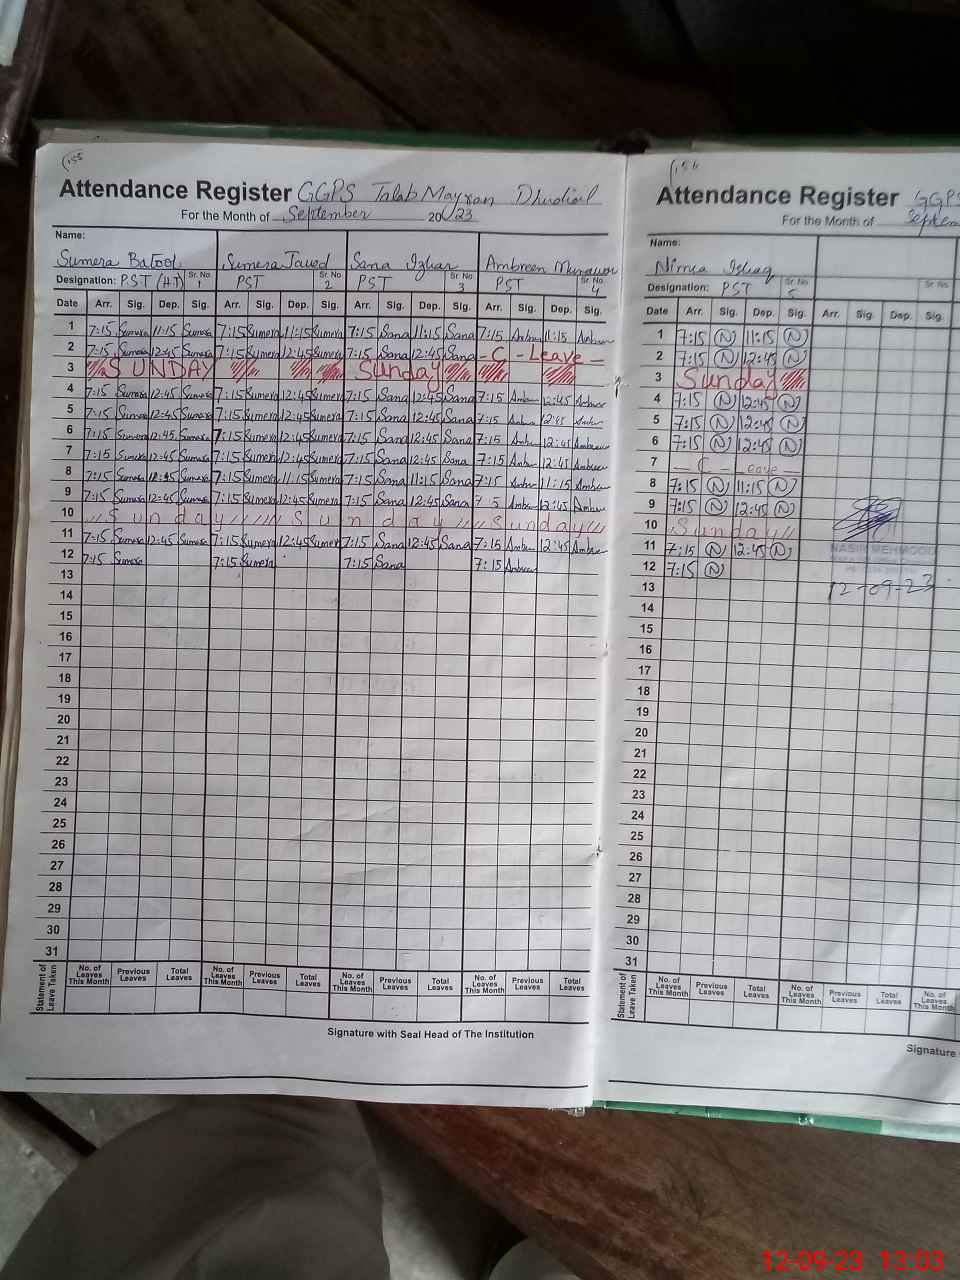 155
Attendance Register GGPS Talab Mayran Dhudial
For the Month of September 2023
Name:
Sumera Batool Sumera Javed Sana Izhar Ambreen Munawar
Designation: PST (HT) Sr. No 1 PST Sr. No 2 PST Sr. No 3 PST Sr. No 4
Date Arr. Sig. Dep. Sig. Arr. Sig. Dep. Sig. Arr. Sig. Dep. Sig. Arr. Sig. Dep. Sig.
1 7:15 Sumera 11:15 Sumera 7:15 Sumera 11:15 Sumera 7:15 Sana 11:15 Sana 7:15 Ambreen 11:15 Ambreen
2 7:15 Sumera 12:45 Sumera 7:15 Sumera 12:45 Sumera 7:15 Sana 12:45 Sana - C - Leave -
3 SUNDAY Sunday
4 7:15 Sumera 12:45 Sumera 7:15 Sumera 12:45 Sumera 7:15 Sana 12:45 Sana 7:15 Ambreen 12:45 Ambreen
5 7:15 Sumera 12:45 Sumera 7:15 Sumera 12:45 Sumera 7:15 Sana 12:45 Sana 7:15 Ambreen 12:45 Ambreen
6 7:15 Sumera 12:45 Sumera 7:15 Sumera 12:45 Sumera 7:15 Sana 12:45 Sana 7:15 Ambreen 12:45 Ambreen
7 7:15 Sumera 12:45 Sumera 7:15 Sumera 12:45 Sumera 7:15 Sana 12:45 Sana 7:15 Ambreen 12:45 Ambreen
8 7:15 Sumera Sumera 7:15 Sumera 11:15 Sumera 7:15 Sana 11:15 Sana 7:15 Ambreen 11:15 Ambreen
9 7:15 Sumera 12:45 Sumera 7:15 Sumera 12:45 Sumera 7:15 Sana 12:45 Sana 7 5 Ambreen 12:45 Ambreen
10 Sunday Sunday Sunday
11 7:15 Sumera 12:45 Sumera 7:15 Sumera 12:45 Sumera 7:15 Sana 12:45 Sana 7:15 Ambreen 12:45 Ambreen
12 7:15 Sumera 7:15 Sumera 7:15 Sana 7:15 Ambreen
13
14
15
16
17
18
19
20
21
22
23
24
25
26
27
28
29
30
31
Statement of Leave Taken No. of Leaves This Month Previous Leaves Total Leaves No. of Leaves This Month Previous Leaves Total Leaves No. of Leaves This Month Previous Leaves Total Leaves No. of Leaves This Month Previous Leaves Total Leaves
Signature with Seal Head of The Institution
156
Attendance Register GGPS
For the Month of Septem
Name:
Nimra Ishaq
Designation: PST Sr. No 5 Sr. No
Date Arr. Sig. Dep. Sig. Arr. Sig. Dep. Sig.
1 7:15 N 11:15 N
2 7:15 N 12:45 N
3 Sunday
4 7:15 N 12:45 N
5 7:15 N 12:45 N
6 7:15 N 12:45 N
7 - C - Leave -
8 7:15 N 11:15 N
9 7:15 N 12:45 N
10 Sunday
11 7:15 N 12:45 N
NASIR MEHMOOD
12 7:15 N
13
12-09-23
14
15
16
17
18
19
20
21
22
23
24
25
26
27
28
29
30
31
Statement of Leave Taken No. of Leaves This Month Previous Leaves Total Leaves No. of Leaves This Month Previous Leaves Total Leaves No. of Leaves This Month
Signature
12-09-23 13:03